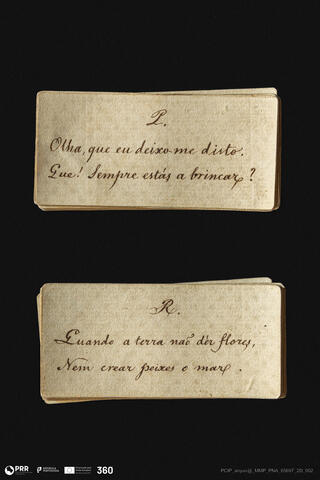 P.
Olha, que eu deixo-me disto.
Que! Sempre estás a brincar?
R.
Quando a terra naõ dér flores,
Nem crear peixes o mar.
PRR
REPÚBLICA PORTUGUESA
360